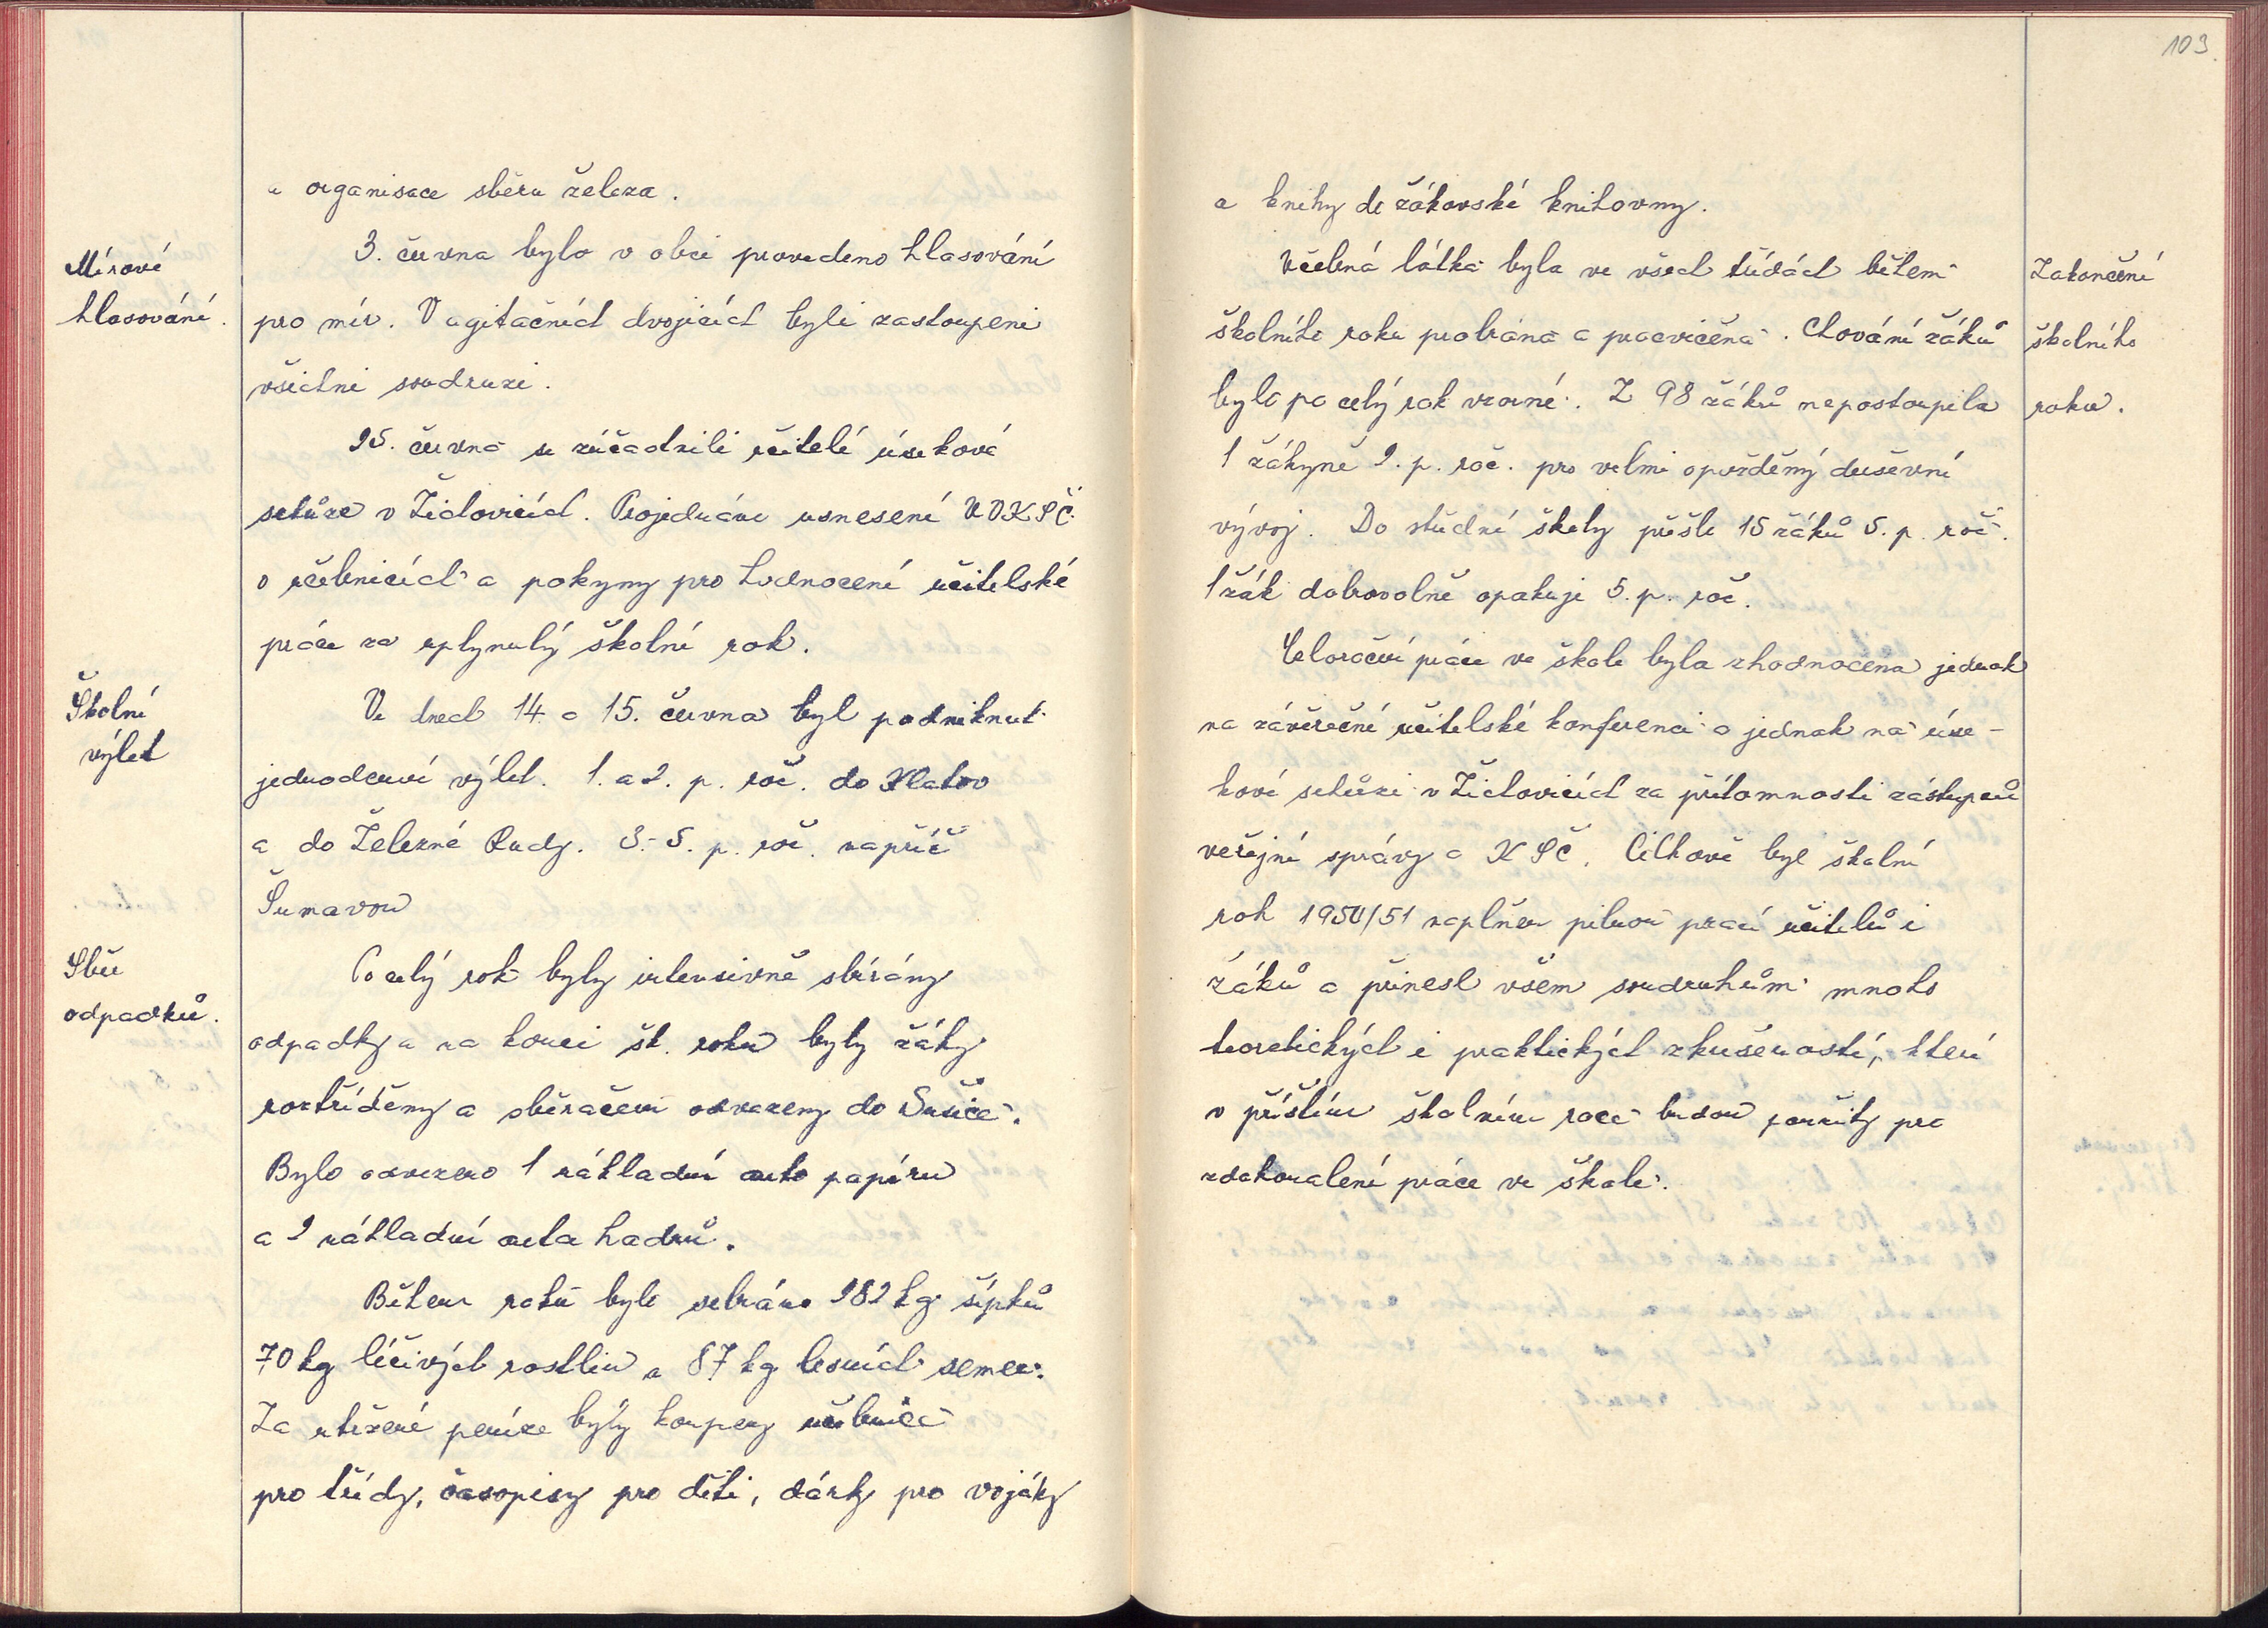 a organisace sběru železa.
Mírové
hlasování.
3. června bylo v obci provedeno hlasování
pro mír. V agitačních dvojicích byli zastoupeni
všichni soudruzi.
25. června se zúčastnili učitelé úsekové
schůze v Židovicích. Projednáno usnesení ÚVKSČ
o učebnicích a pokyny pro hodnocení učitelské
práce za uplynulý školní rok.
Školní
výlet
Ve dnech 14. a 15. června byl podniknut
jednodenní výlet. 1. a 2. p. roč. do Klatov
a do Železné Rudy. 3.-5. p. roč. napříč
Šumavou
Sběr
odpadků.
Po celý rok byly intensivně sbírány
odpadky a na konci šk. roku byly žáky
roztříděny a sběračem odvezeny do Sušice.
Bylo odvezeno 1 nákladní auto papíru
a 2 nákladní auta hadrů.
Během roku bylo sebráno 282 kg šípků
70 kg léčivých rostlin a 87 kg lesních semen.
Za utržené peníze byly koupeny učebnice
pro třídy, časopisy pro děti, dárky pro vojáky
103
a knihy do žákovské knihovny.
Zakončení
školního
roku.
Učebná látka byla ve všech třídách během
školního roku probrána a procvičena. Chování žáků
bylo po celý rok vzorné. Z 98 žáků nepostoupila
1 žákyně 2. p. roč. pro velmi opožděný duševní
vývoj. Do střední školy přešlo 15 žáků 5. p. roč.
1 žák dobrovolně opakuje 5. p. roč.
Celoroční práce ve škole byla zhodnocena jednak
na závěrečné učitelské konferenci a jednak na úse-
kové schůzi v Židovicích za přítomnosti zástupců
veřejné správy a KSČ. Celkově byl školní
rok 1950/51 naplněn pilnou prací učitelů i
žáků a přinesl všem soudruhům mnoho
teoretických i praktických zkušeností, které
v příštím školním roce budou použity pro
zdokonalení práce ve škole.